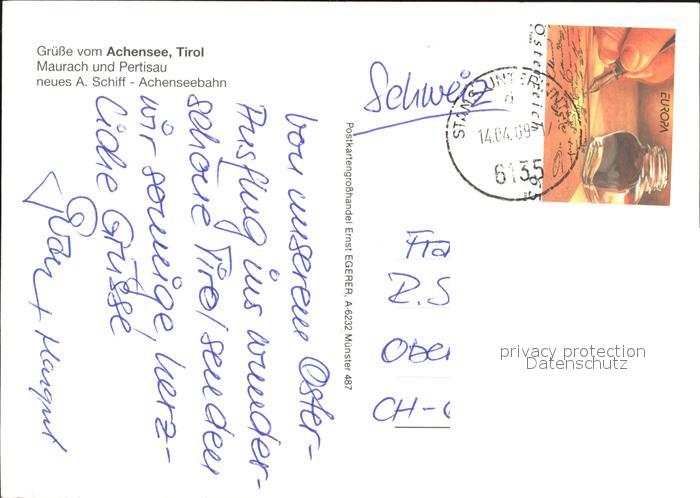 Grüße vom Achensee, Tirol
Maurach und Pertisau
neues A. Schiff - Achenseebahn
Von unserem Oster-
Ausflug ins wunder-
schöne Tirol senden
wir sonnige, herz-
liche Grüsse
+ Margrit
Postkartengroßhandel Ernst EGERER, A-6232 Münster 487
Schweiz
Österreich
EUROPA
14.04.09
6135
Fra
R.S
Ober
CH-
privacy protection
Datenschutz